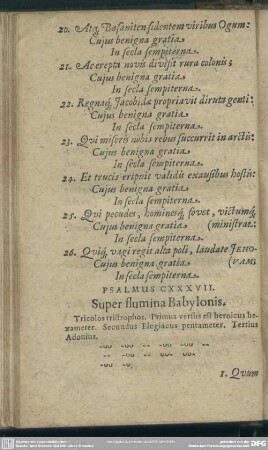 20. Atq; Basaniten fidentem viribus Ogum:
Cujus benigna gratia
In secla sempiterna.
21. Ac erepta novis divisit rura colonis;
Cujus benigna gratia
In secla sempiterna.
22. Regnaq; Jacobidæ propriavit diruta genti:
Cujus benigna gratia
In secla sempiterna.
23. Qvi miseris nobis rebus succurrit in arctis:
Cujus benigna gratia
In secla sempiterna.
24. Et trucis eripuit validis è casibus hostis:
Cujus benigna gratia
In secla sempiterna.
25. Qvi pecudes, hominesq; fovet, victumq;
Cujus benigna gratia (ministrat:
In secla sempiterna.
26. Qviq; vagi regit alta poli, laudate JEHO-
Cujus benigna gratia (VAM;
In secla sempiterna.
PSALMUS CXXXVII.
Super flumina Babylonis.
Tricolos tristrophos. Primus versus est heroicus he-
xameter. Secundus Elegiacus pentameter. Tertius
Adonius.
1. Qvum